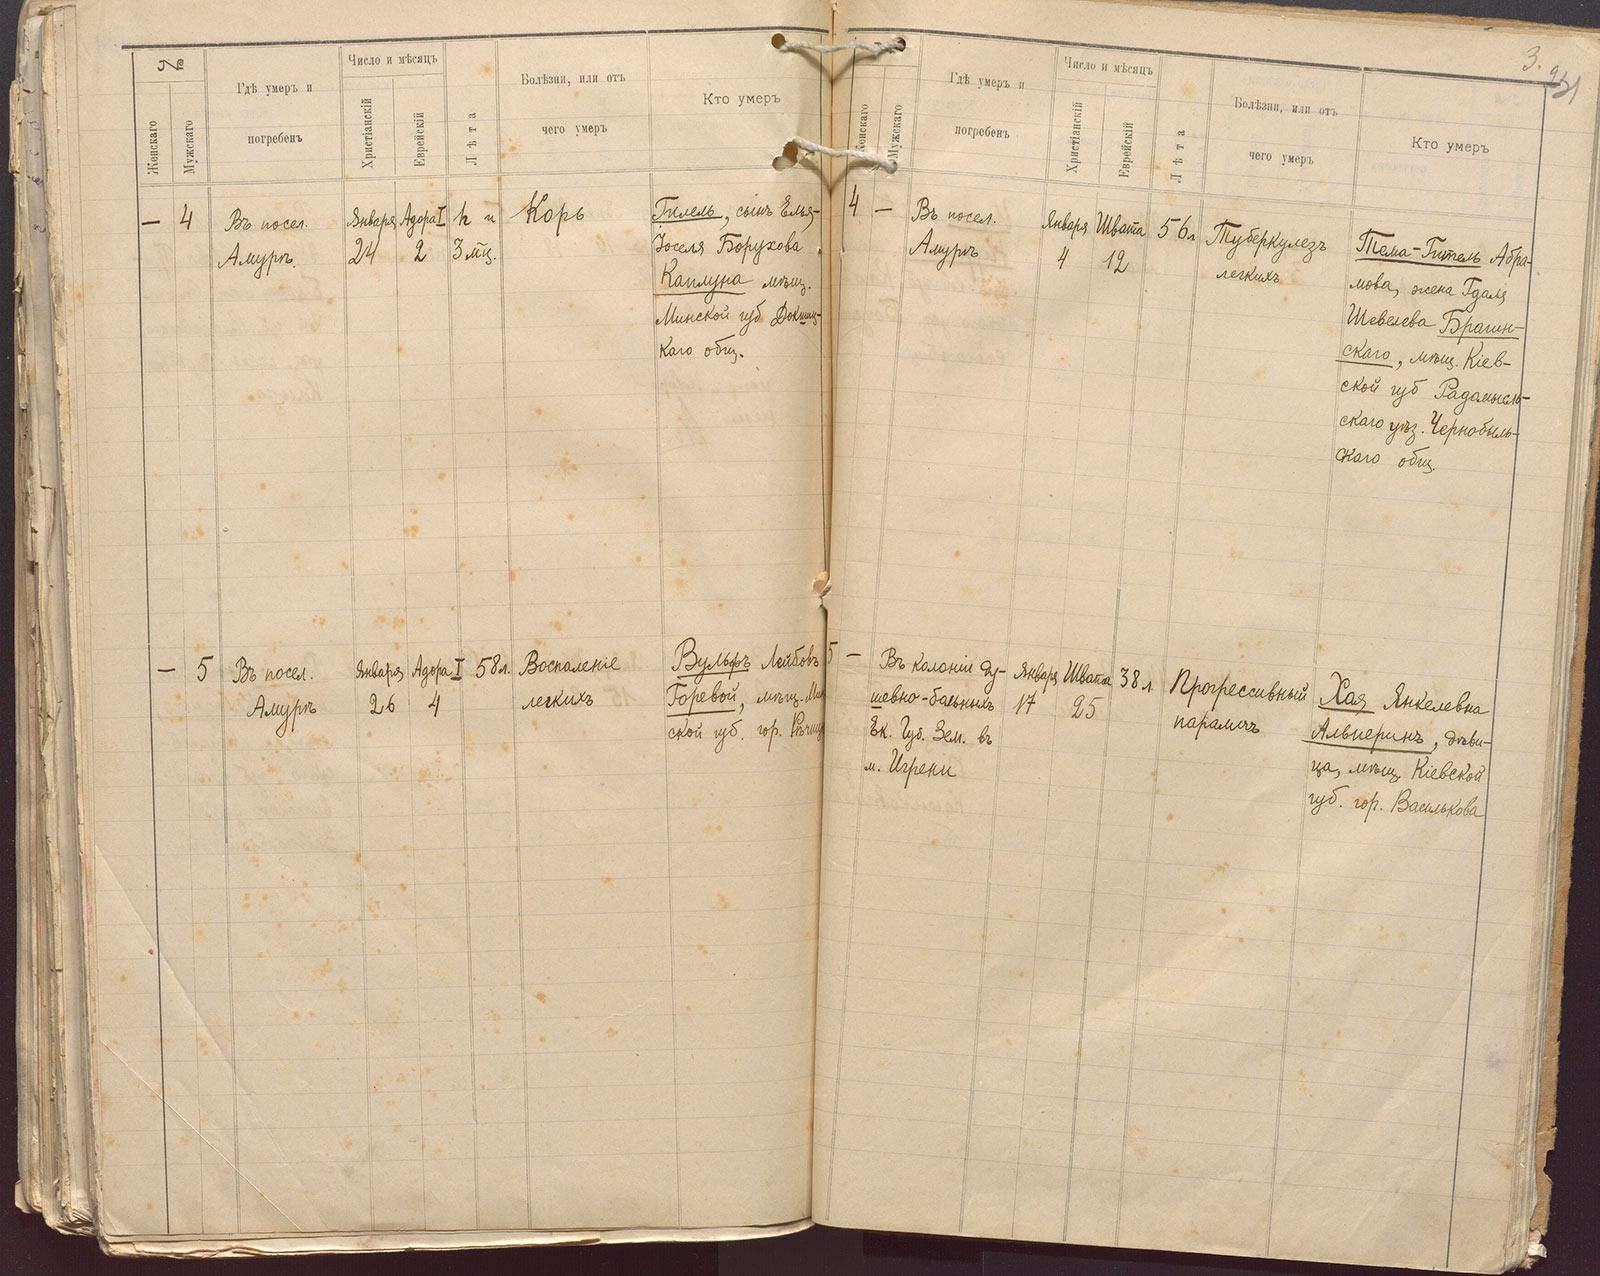 №
Женскаго
Мужскаго
Гдѣ умеръ и
погребенъ
Число и мѣсяцъ
Христіанскій
Еврейскій
Лѣта
Болѣзни, или отъ
чего умеръ
Кто умеръ
— 4
Въ посел.
Амурѣ.
Января
24
Адора I
2
3 мц.
Корь
Гилель, сынъ Елья-
Іоселя Борухова
Каплуна мѣщ.
Минской губ Докшиц-
каго общ.
— 5
Въ посел.
Амурѣ
Января
26
Адора I
4
58 л.
Воспаленіе
легкихъ
Вульфъ Лейбовъ
Горевой, мѣщ. Мин
ской губ. гор. Рѣчица
3.
Женскаго
Мужскаго
Гдѣ умеръ и
погребенъ
Число и мѣсяцъ
Христіанскій
Еврейскій
Лѣта
Болѣзни, или отъ
чего умеръ
Кто умеръ
4 —
Въ посел.
Амурѣ
Января
4
Швата
12
56 л
Туберкулезъ
легкихъ
Тема-Гитель Абра-
мова, жена Гдаля
Шевелева Брагин-
скаго, мѣщ. Кіев-
ской губ Радомысль-
скаго уѣз. Чернобыль-
скаго общ.
5 —
Въ колоніи ду-
шевно-больныхъ
Ек. Губ. Зем. въ
м. Игрени
Января
17
Швата
25
38 л
Прогрессивный
параличъ
Хая Янкелевна
Альперинъ, дѣви-
ца, мѣщ. Кіевской
губ. гор. Василькова